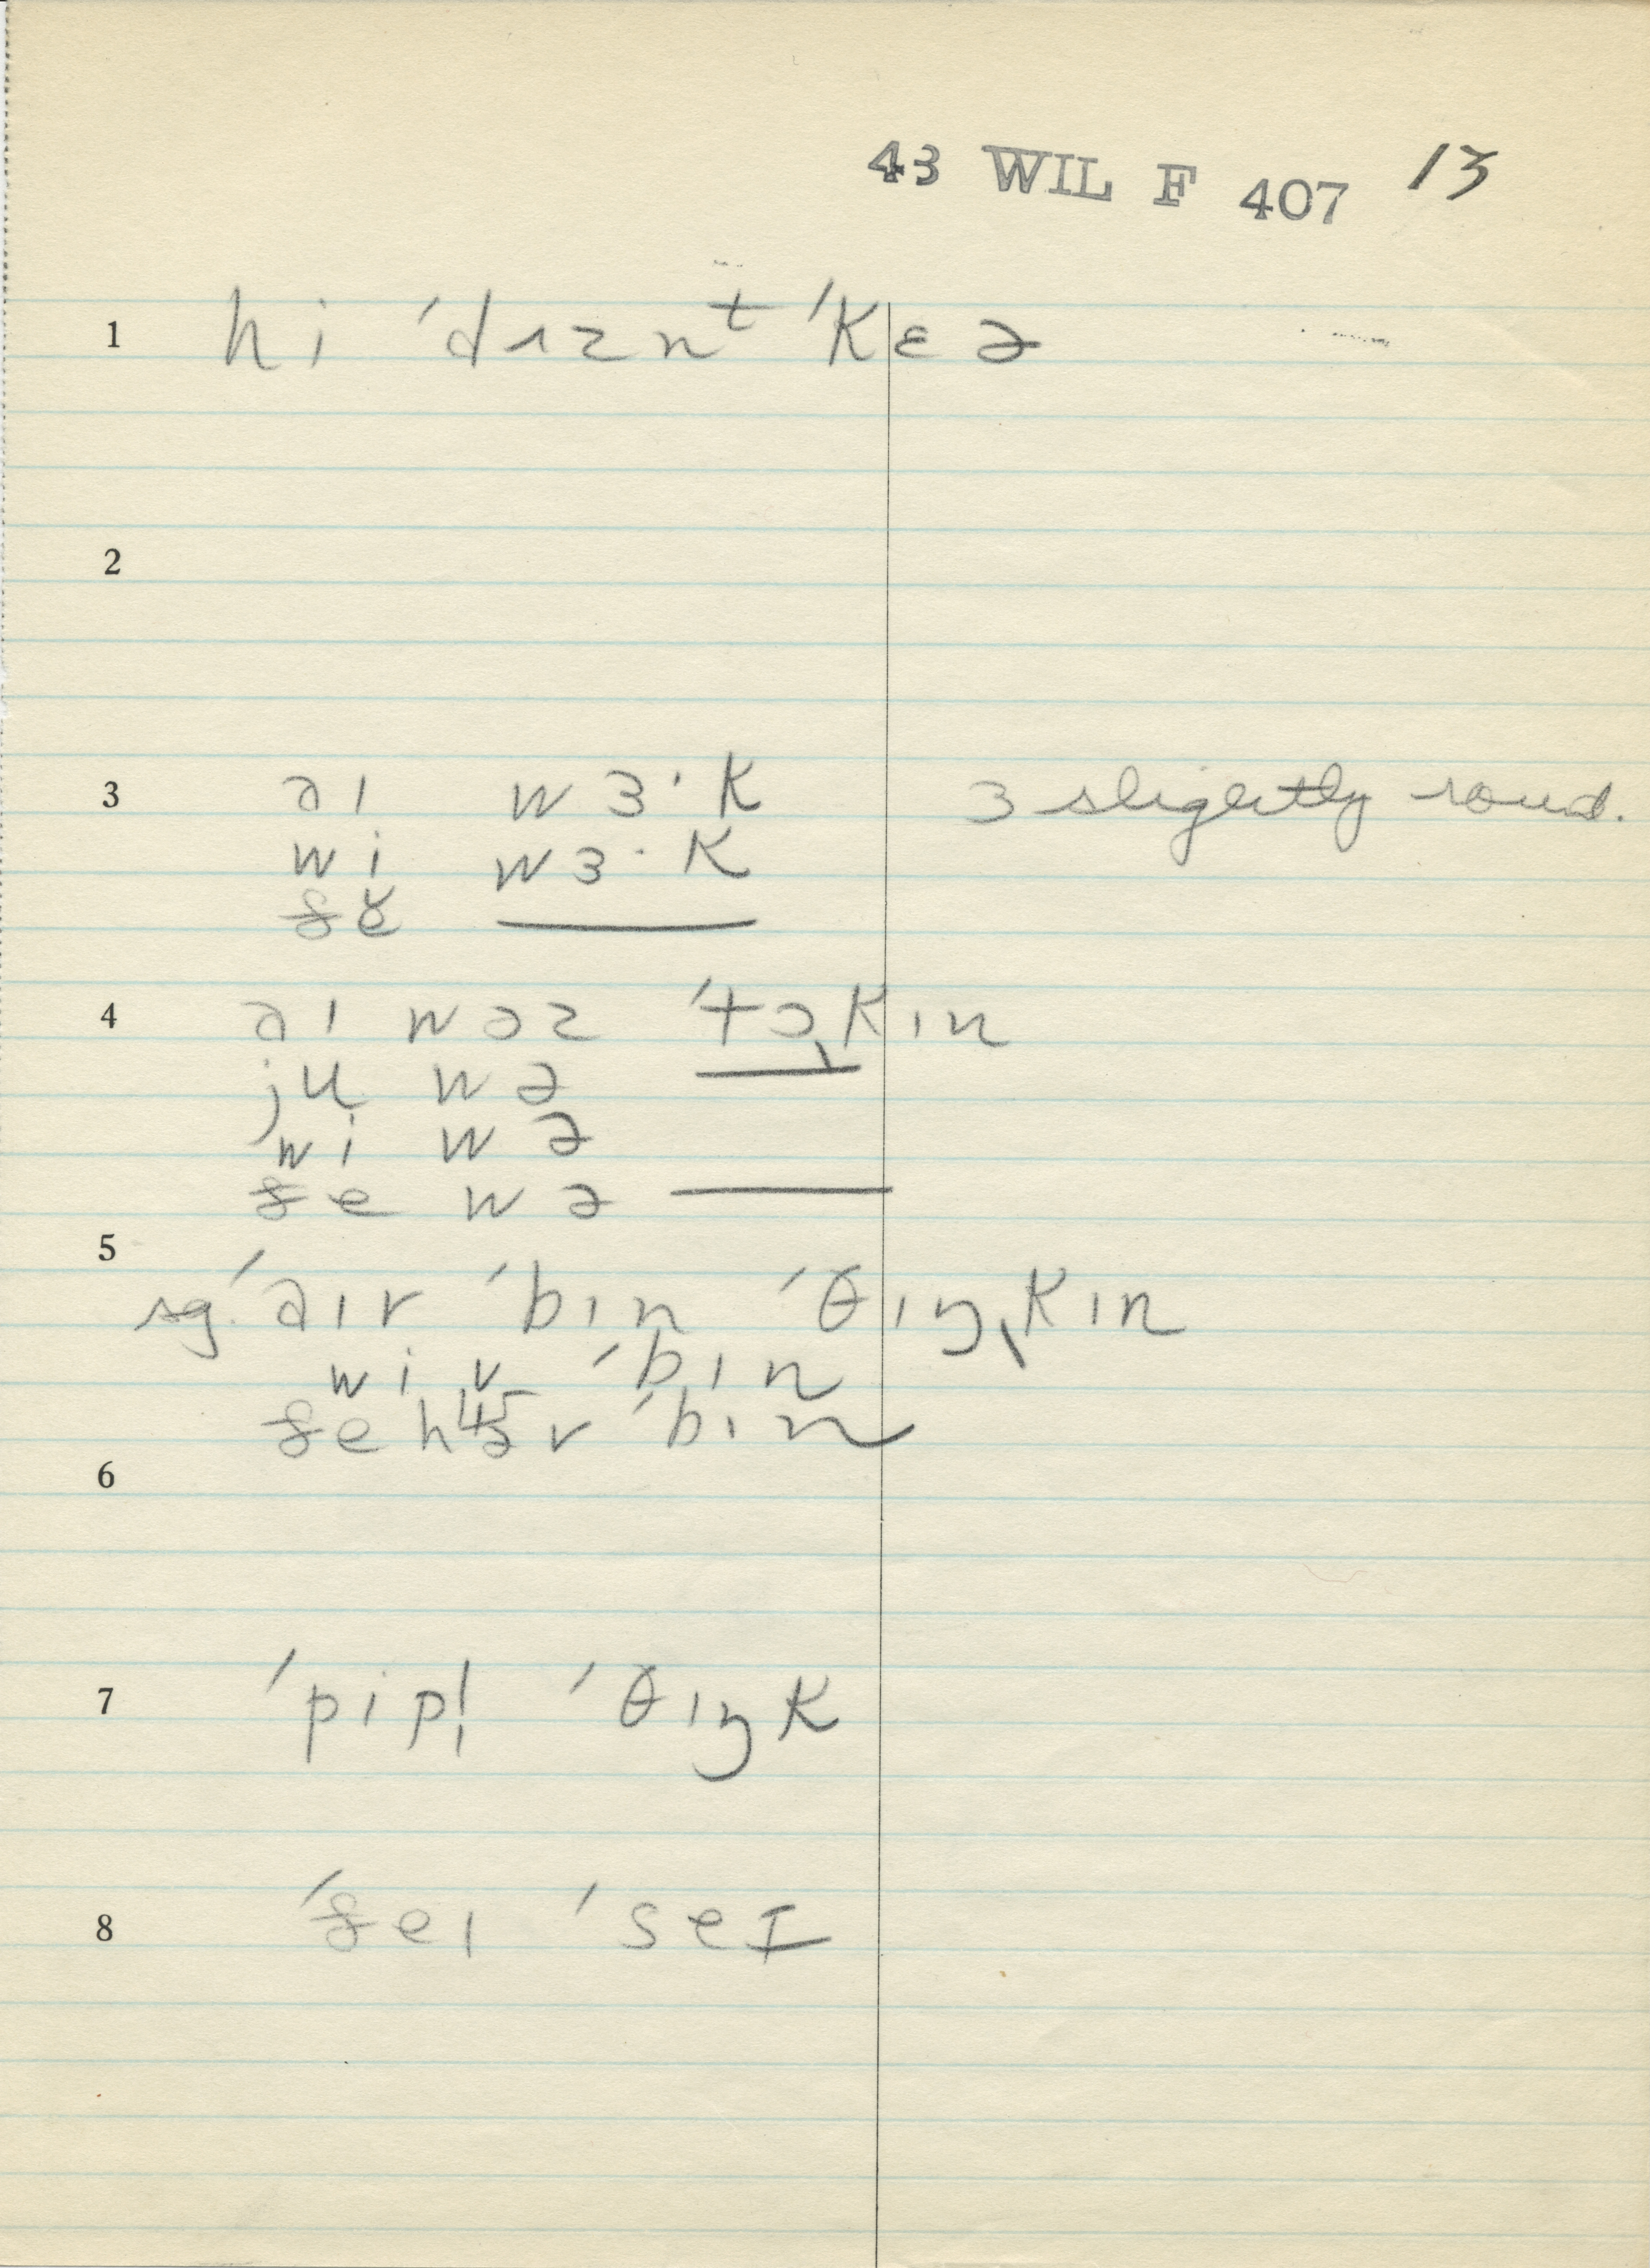 43 WIL F 407 13
1 hi ˈdɪznᵗ ˈkɛə
2
3 aɪ wɜ·k ɜ slightly round.
wi wɜ·k
ðĕ ____
4 aɪ wəz ˈtɔˌkɪn
ju wə ____
wi wə
ðe wə ____
5
sg. ˈaɪv ˈbɪn ˈθɪŋˌkɪn
wi v ˈbɪn
ðe v ˈbɪn
6
7 ˈpipl̩ ˈθɪŋk
8 ˈðeɪ ˈseɪ